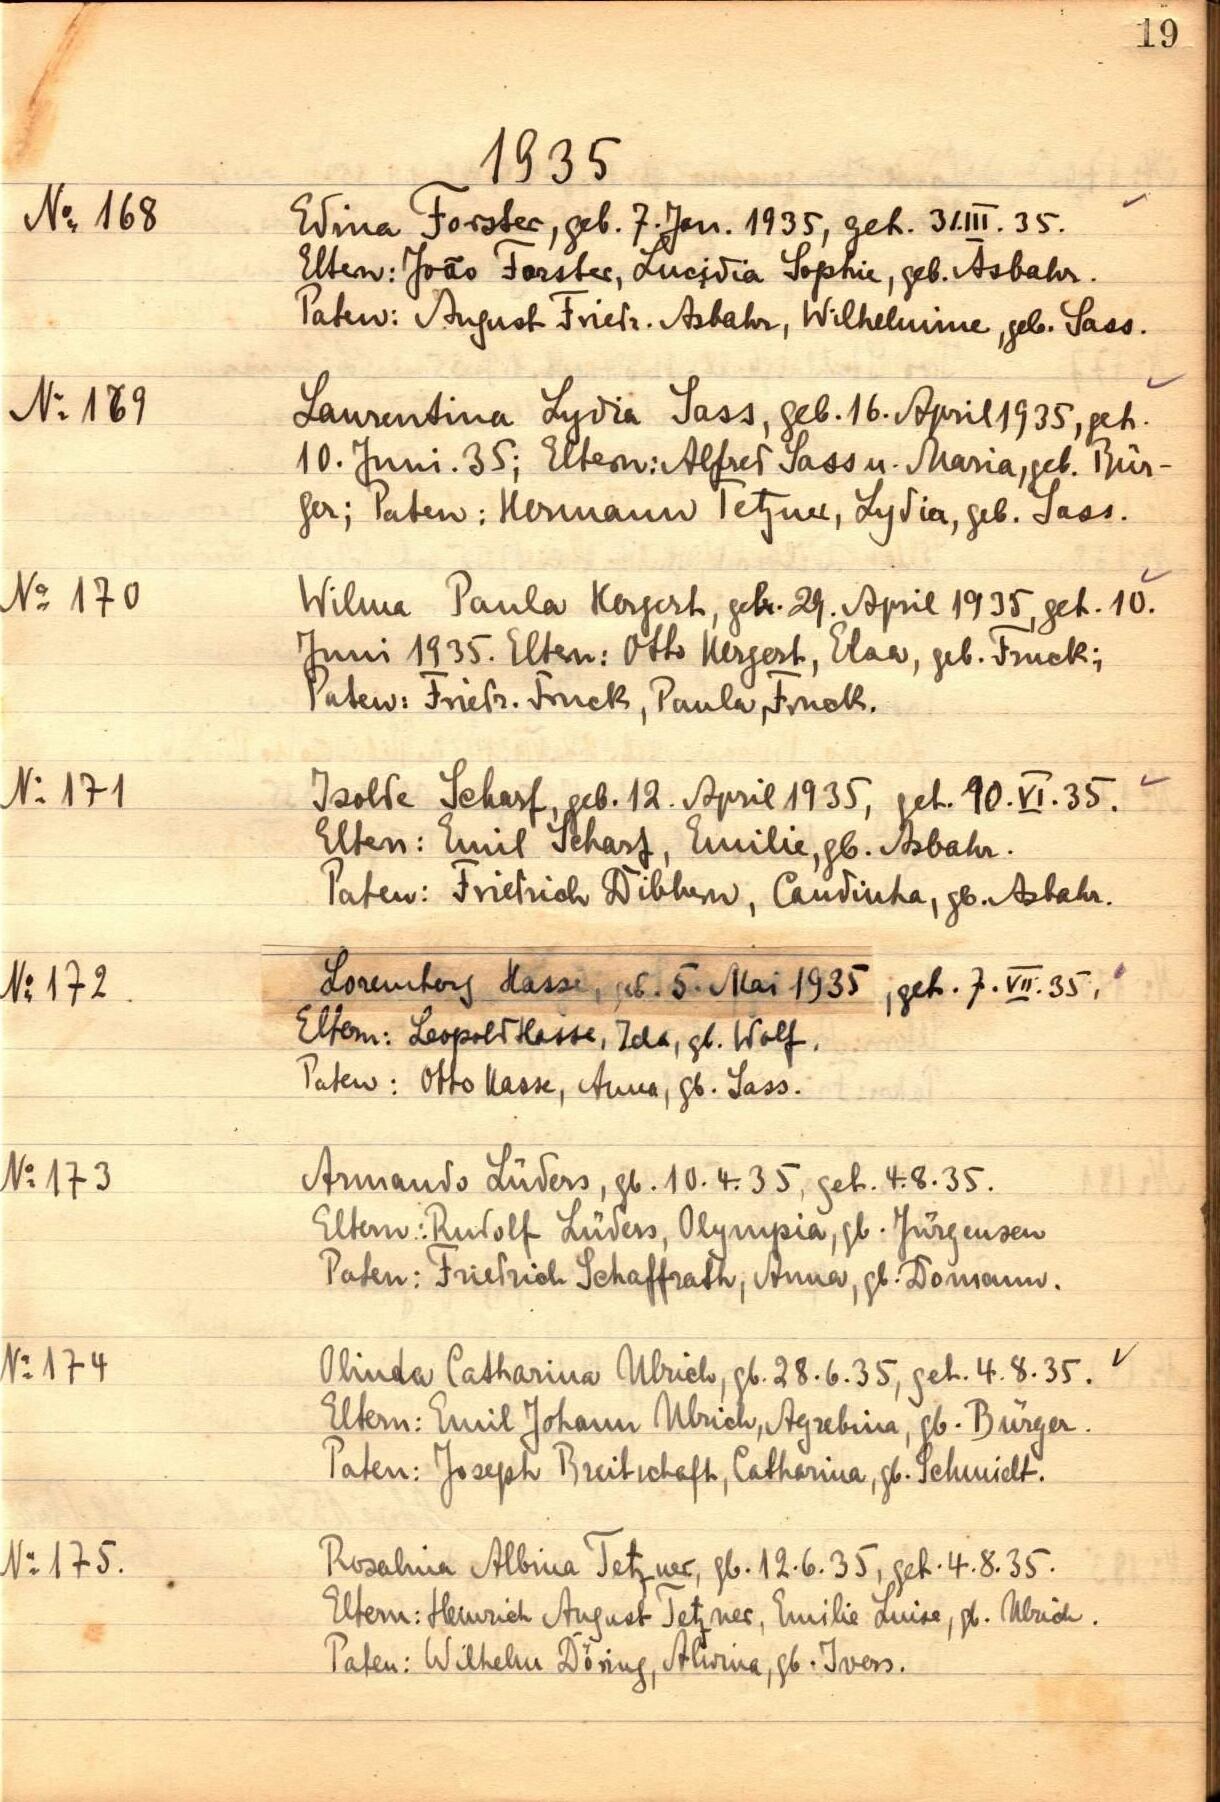 19
1935
No. 168 Edina Forster, geb. 7. Jan. 1935, get. 31.III.35.
Eltern: João Forster, Lucidia Sophie, geb. Asbahr.
Paten: August Friedr. Asbahr, Wilhelmine, geb. Sass.
No. 169 Laurentina Lydia Sass, geb. 16. April 1935, get.
10. Juni. 35; Eltern: Alfred Sass u. Maria, geb. Bür-
ger; Paten: Hermann Tetzner, Lydia, geb. Sass.
No. 170 Wilma Paula Hergert, geb. 29. April 1935, get. 10.
Juni 1935. Eltern: Otto Hergert, Elsa, geb. Fruck;
Paten: Friedr. Fruck, Paula Fruck.
No. 171 Isolde Scharf, geb. 12. April 1935, get. 90.VI.35.
Eltern: Emil Scharf, Emilie, gb. Asbahr.
Paten: Friedrich Dibbern, Candinha, gb. Asbahr.
No. 172 Loremberg Hasse, geb. 5. Mai 1935, get. 7.VII.35,
Eltern: Leopold Hasse, Ida, gb. Wolf.
Paten: Otto Hasse, Anna, gb. Sass.
No. 173 Armando Lüders, gb. 10.4.35, get. 4.8.35.
Eltern: Rudolf Lüders, Olympia, gb. Jürgensen
Paten: Friedrich Schaffrath, Anna, gb. Domann.
No. 174 Olinda Catharina Ulrich, gb. 28.6.35, get. 4.8.35.
Eltern: Emil Johann Ulrich, Agrebina, gb. Bürger.
Paten: Joseph Breitschaft, Catharina, gb. Schmidt.
No. 175. Rosalina Albina Tetzner, gb. 12.6.35, get. 4.8.35.
Eltern: Heinrich August Tetzner, Emilie Luise, gb. Ulrich.
Paten: Wilhelm Döring, Alwina, gb. Ivers.